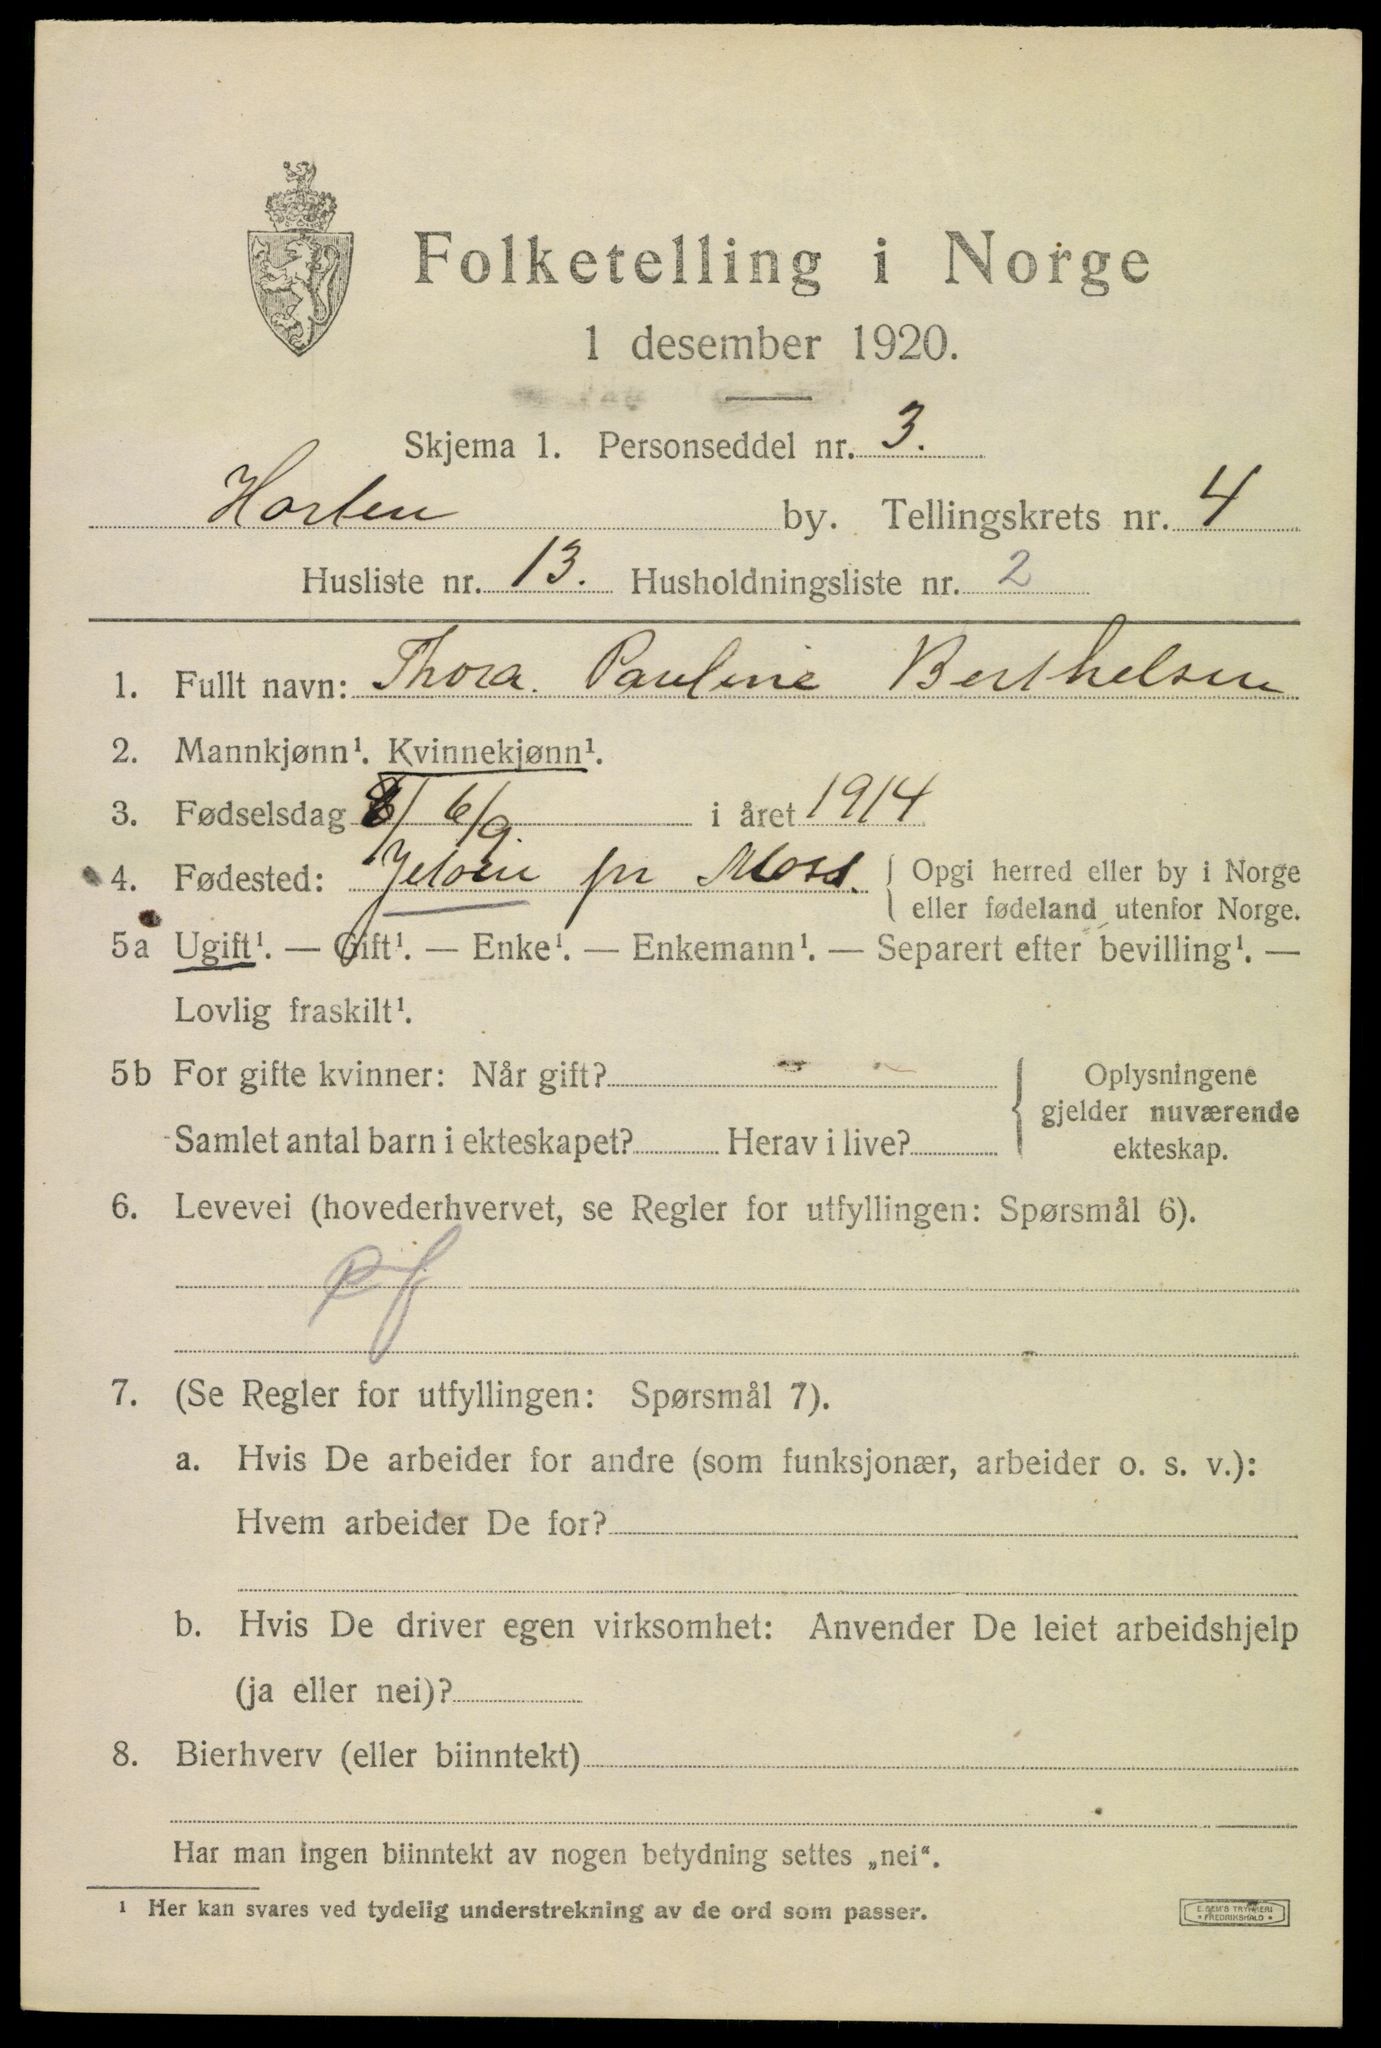 Folketelling i Norge
1 desember 1920.
Skjema 1. Personseddel nr. 3.
Horten by. Tellingskrets nr. 4
Husliste nr. 13. Husholdningsliste nr. 2
1. Fullt navn: Thora. Pauline Berthelsen
2. Mannkjønn¹. Kvinnekjønn¹.
3. Fødselsdag 6/9 i året 1914
4. Fødested: Jeløen pr Moss. { Opgi herred eller by i Norge
eller fødeland utenfor Norge.
5a Ugift¹. — Gift¹. — Enke¹. — Enkemann¹. — Separert efter bevilling¹. —
Lovlig fraskilt¹.
5b For gifte kvinner: Når gift? { Oplysningene
gjelder nuværende
Samlet antal barn i ekteskapet? Herav i live? ekteskap.
6. Levevei (hovederhvervet, se Regler for utfyllingen: Spørsmål 6).
pf
7. (Se Regler for utfyllingen: Spørsmål 7).
a. Hvis De arbeider for andre (som funksjonær, arbeider o. s. v.):
Hvem arbeider De for?
b. Hvis De driver egen virksomhet: Anvender De leiet arbeidshjelp
(ja eller nei)?
8. Bierhverv (eller biinntekt)
Har man ingen biinntekt av nogen betydning settes „nei“.
¹ Her kan svares ved tydelig understrekning av de ord som passer.
E. SEM'S TRYKKERI
• FREDRIKSHALD •